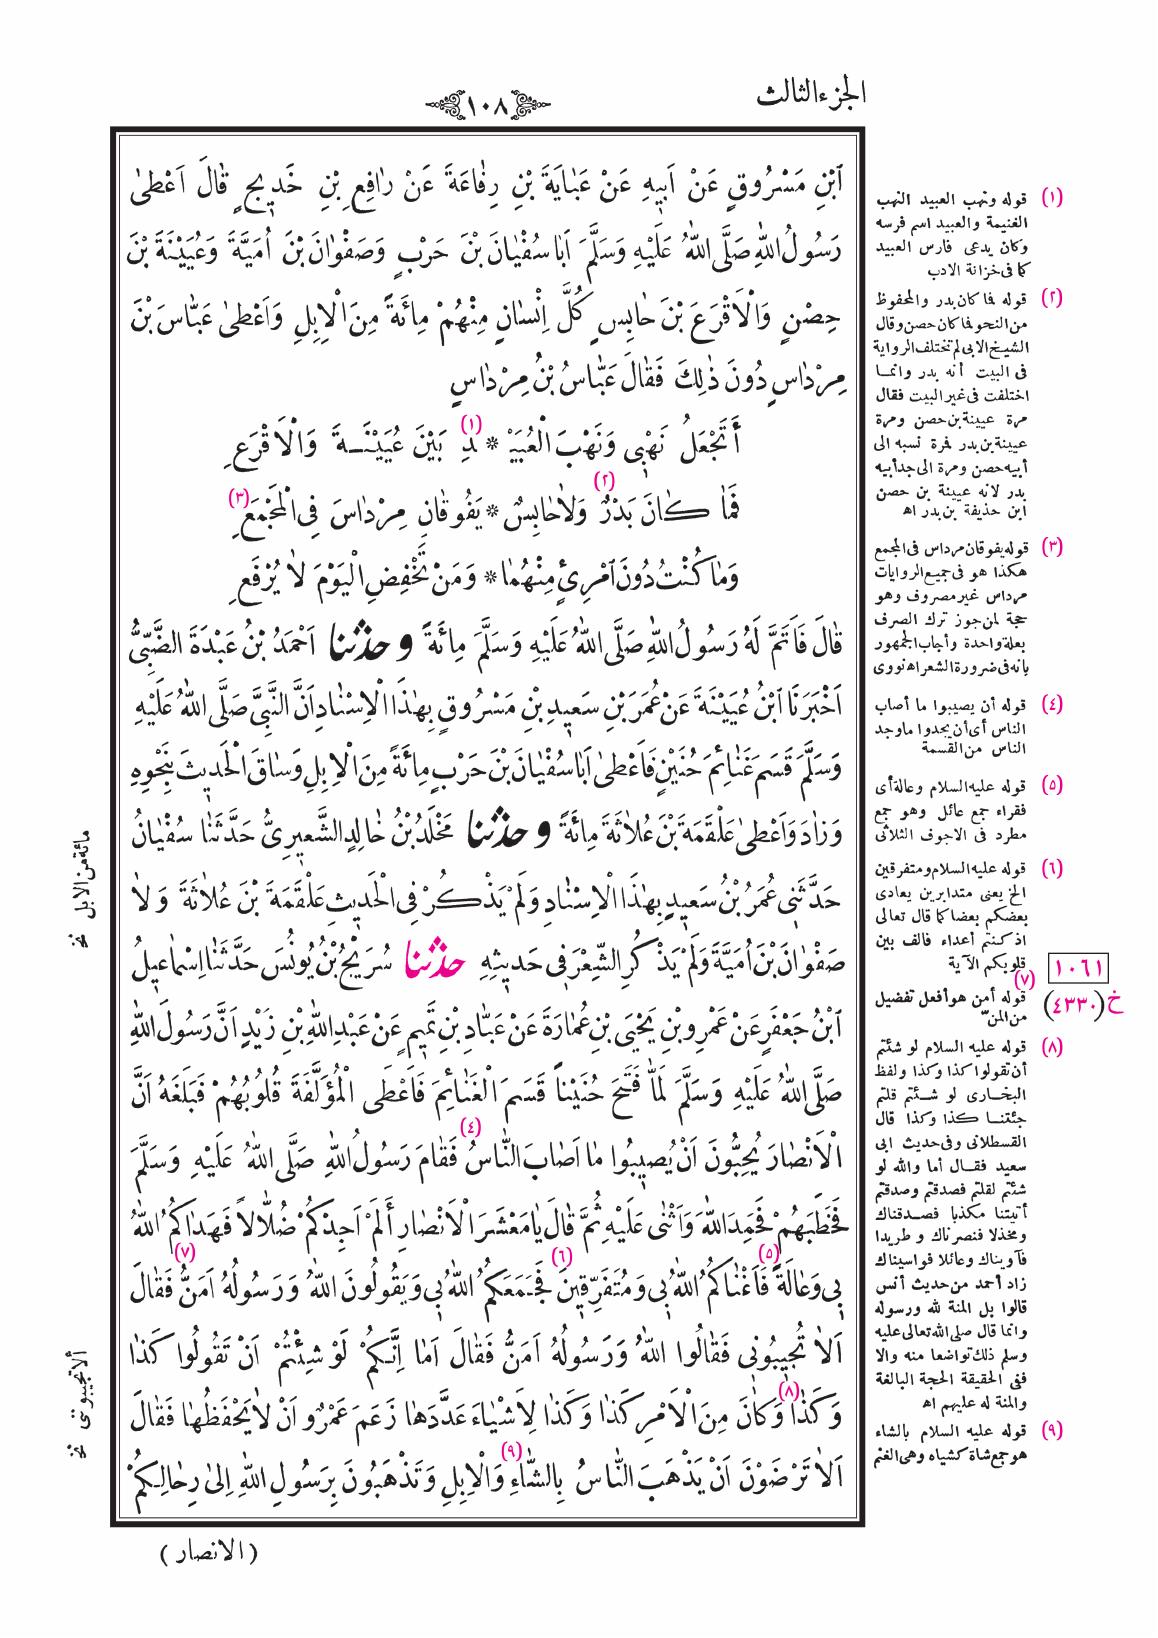 الجزء الثالث
١٠٨
ٱبْنِ مَسْرُوقٍ عَنْ اَبِيهِ عَنْ عَبَايَةَ بْنِ رِفَاعَةَ عَنْ رَافِعِ بْنِ خَدِيجٍ قَالَ اَعْطٰى
رَسُولُ اللّٰهِ صَلَّى اللّٰهُ عَلَيْهِ وَسَلَّمَ اَبَا سُفْيَانَ بْنَ حَرْبٍ وَصَفْوَانَ بْنَ اُمَيَّةَ وَعُيَيْنَةَ بْنَ
حِصْنٍ وَالْاَقْرَعَ بْنَ حَابِسٍ كُلَّ اِنْسَانٍ مِنْهُمْ مِائَةً مِنَ الْاِبِلِ وَاَعْطٰى عَبَّاسَ بْنَ
مِرْدَاسٍ دُونَ ذٰلِكَ فَقَالَ عَبَّاسُ بْنُ مِرْدَاسٍ
أَتَجْعَلُ نَهْبِى وَنَهْبَ الْعُبَيْـ * ـدِ (١) بَيْنَ عُيَيْنَــةَ وَالْاَقْرَعِ
فَمَا كَانَ بَدْرٌ (٢) وَلَا حَابِسٌ * يَفُوقَانِ مِرْدَاسَ فِى الْمَجْمَعِ (٣)
وَمَا كُنْتُ دُونَ ٱمْرِئٍ مِنْهُمَا * وَمَنْ تَخْفِضِ الْيَوْمَ لَا يُرْفَعِ
قَالَ فَاَتَمَّ لَهُ رَسُولُ اللّٰهِ صَلَّى اللّٰهُ عَلَيْهِ وَسَلَّمَ مِائَةً وحدثنا اَحْمَدُ بْنُ عَبْدَةَ الضَّبِّىُّ
اَخْبَرَنَا ٱبْنُ عُيَيْنَةَ عَنْ عُمَرَ بْنِ سَعِيدِ بْنِ مَسْرُوقٍ بِهٰذَا الْاِسْنَادِ اَنَّ النَّبِىَّ صَلَّى اللّٰهُ عَلَيْهِ
وَسَلَّمَ قَسَمَ غَنَائِمَ حُنَيْنٍ فَاَعْطٰى اَبَا سُفْيَانَ بْنَ حَرْبٍ مِائَةً مِنَ الْاِبِلِ وَسَاقَ الْحَدِيثَ بِنَحْوِهِ
وَزَادَ وَاَعْطٰى عَلْقَمَةَ بْنَ عُلَاثَةَ مِائَةً وحدثنا مَخْلَدُ بْنُ خَالِدٍ الشَّعِيرِىُّ حَدَّثَنَا سُفْيَانُ
حَدَّثَنِى عُمَرُ بْنُ سَعِيدٍ بِهٰذَا الْاِسْنَادِ وَلَمْ يَذْكُرْ فِى الْحَدِيثِ عَلْقَمَةَ بْنَ عُلَاثَةَ وَلَا
صَفْوَانَ بْنَ اُمَيَّةَ وَلَمْ يَذْكُرِ الشِّعْرَ فِى حَدِيثِهِ حدثنا سُرَيْجُ بْنُ يُونُسَ حَدَّثَنَا اِسْمَاعِيلُ
ٱبْنُ جَعْفَرٍ عَنْ عَمْرِو بْنِ يَحْيَى بْنِ عُمَارَةَ عَنْ عَبَّادِ بْنِ تَمِيمٍ عَنْ عَبْدِ اللّٰهِ بْنِ زَيْدٍ اَنَّ رَسُولَ اللّٰهِ
صَلَّى اللّٰهُ عَلَيْهِ وَسَلَّمَ لَمَّا فَتَحَ حُنَيْناً قَسَمَ الْغَنَائِمَ فَاَعْطَى الْمُؤَلَّفَةَ قُلُوبُهُمْ فَبَلَغَهُ اَنَّ
الْاَنْصَارَ يُحِبُّونَ اَنْ يُصِيبُوا مَا اَصَابَ النَّاسُ (٤) فَقَامَ رَسُولُ اللّٰهِ صَلَّى اللّٰهُ عَلَيْهِ وَسَلَّمَ
فَخَطَبَهُمْ فَحَمِدَ اللّٰهَ وَاَثْنٰى عَلَيْهِ ثُمَّ قَالَ يَا مَعْشَرَ الْاَنْصَارِ أَلَمْ اَجِدْكُمْ ضُلَّالاً فَهَدَاكُمُ اللّٰهُ
بِى وَعَالَةً (٥) فَاَغْنَاكُمُ اللّٰهُ بِى وَمُتَفَرِّقِينَ (٦) فَجَمَعَكُمُ اللّٰهُ بِى وَيَقُولُونَ اللّٰهُ وَرَسُولُهُ اَمَنُّ (٧) فَقَالَ
اَلَا تُجِيبُونِى فَقَالُوا اللّٰهُ وَرَسُولُهُ اَمَنُّ فَقَالَ اَمَا اِنَّكُمْ لَوْ شِئْتُمْ اَنْ تَقُولُوا كَذَا
وَكَذَا (٨) وَكَانَ مِنَ الْاَمْرِ كَذَا وَكَذَا لِاَشْيَاءَ عَدَّدَهَا زَعَمَ عَمْرٌو اَنْ لَا يَحْفَظُهَا فَقَالَ
اَلَا تَرْضَوْنَ اَنْ يَذْهَبَ النَّاسُ بِالشَّاءِ (٩) وَالْاِبِلِ وَتَذْهَبُونَ بِرَسُولِ اللّٰهِ اِلٰى رِحَالِكُمْ
(الانصار)
(١) قوله ونهب العبيد النهب
الغنيمة والعبيد اسم فرسه
وكان يدعى فارس العبيد
كما فى خزانة الادب
(٢) قوله فما كان بدر والمحفوظ
من النحو فما كان حصن وقال
الشيخ الابى لم تختلف الرواية
فى البيت أنه بدر وانمـا
اختلفت فى غير البيت فقال
مرة عيينة بن حصن ومرة
عيينة بن بدر فمرة نسبه الى
أبيه حصن ومرة الى جد أبيه
بدر لانه عيينة بن حصن
ابن حذيفة بن بدر اه
(٣) قوله يفوقان مرداس فى المجمع
هكذا هو فى جميع الروايات
مرداس غير مصروف وهو
حجة لمن جوز ترك الصرف
بعلة واحدة وأجاب الجمهور
بانه فى ضرورة الشعر اه نووى
(٤) قوله أن يصيبوا ما أصاب
الناس أى أن يجدوا ما وجد
الناس من القسمة
(٥) قوله عليه السلام وعالة أى
فقراء جمع عائل وهو جمع
مطرد فى الاجوف الثلاثى
(٦) قوله عليه السلام ومتفرقين
الخ يعنى متدابرين يعادى
بعضكم بعضا كما قال تعالى
اذ كـنتم أعداء فالف بين
قلوبكم الآية
(٧) قوله أمن هو أفعل تفضيل
من المنّ
(٨) قوله عليه السلام لو شئتم
أن تقولوا كذا وكذا ولفظ
البخـارى لو شـئتم قلتم
جئتنـا كذا وكذا قال
القسطلانى وفى حديث ابى
سعيد فقـال أما والله لو
شئتم لقلتم فصدقتم وصدقتم
أتيتنا مكذبا فصـدقناك
ومخذلا فنصرناك و طريدا
فآويناك وعائلا فواسيناك
زاد أحمد من حديث أنس
قالوا بل المنة لله ورسوله
وانما قال صلى الله تعالى عليه
وسلم ذلك تواضعا منه والا
ففى الحقيقة الحجة البالغة
والمنة له عليهم اه
(٩) قوله عليه السلام بالشاء
هو جمع شاة كشياه وهى الغنم
١٠٦١
خ (٤٣٣٠)
مائة من الابل نخ
ألا تجيبونى نخ